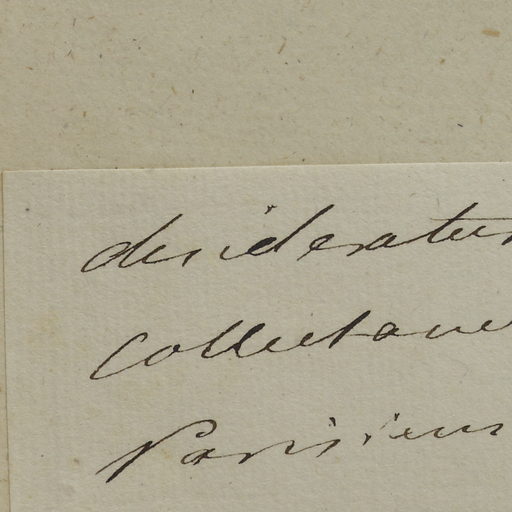 desideratur
Collectane
Parisiens